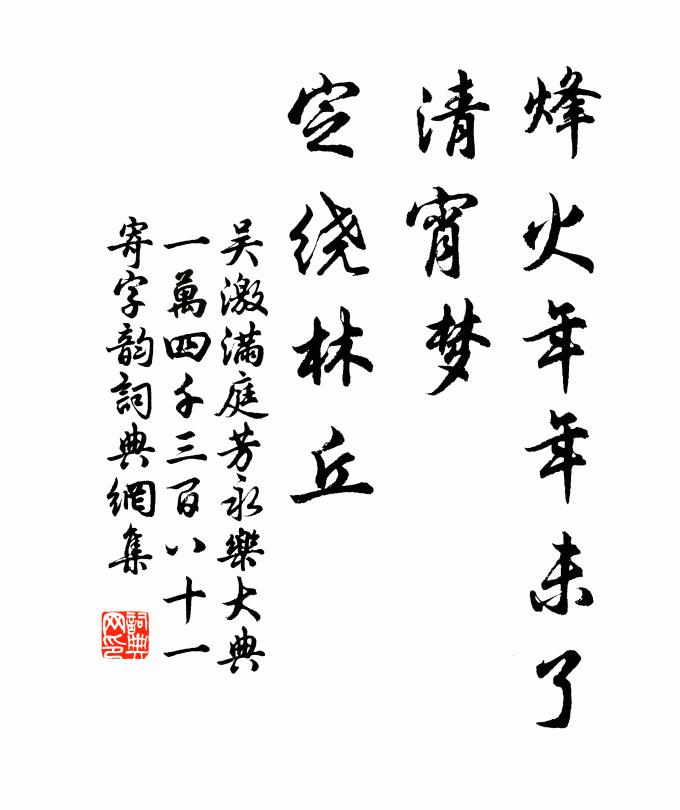 烽火年年未了
清宵梦
定绕林丘
吴激满庭芳永樂大典
一萬四千三百八十一
寄字韵詞典網集
詞典网印